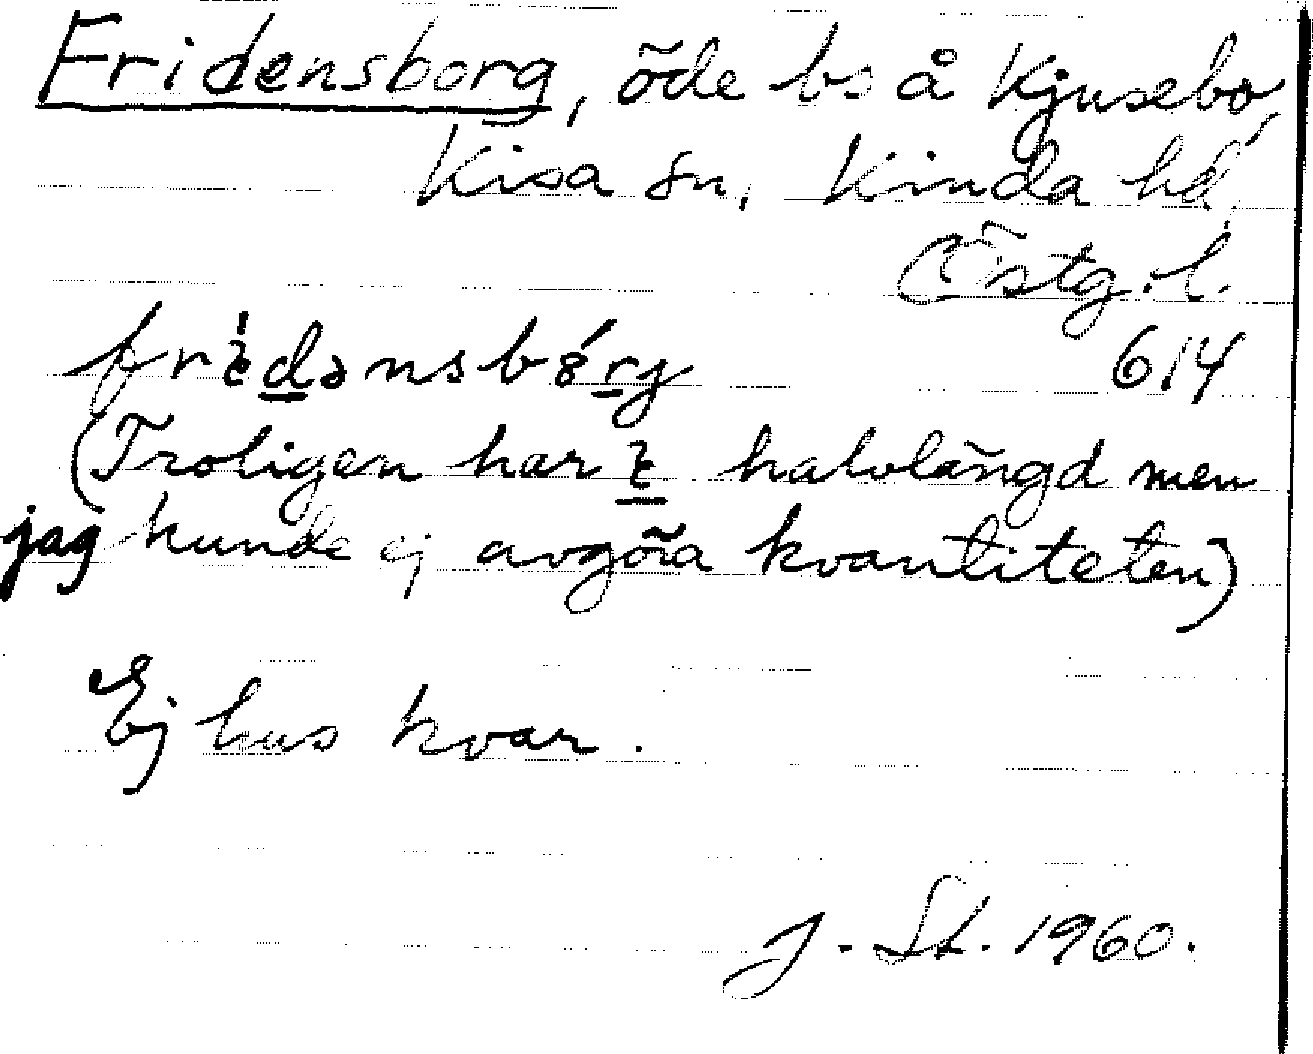 Fridensborg, öde bs å Kjusebo,
Kisa sn, Kinda hd,
Östg. l.
614
(Troligen har halvlängd men
jag kunde ej avgöra kvantiteten)
Ej hus kvar.
J. St. 1960.